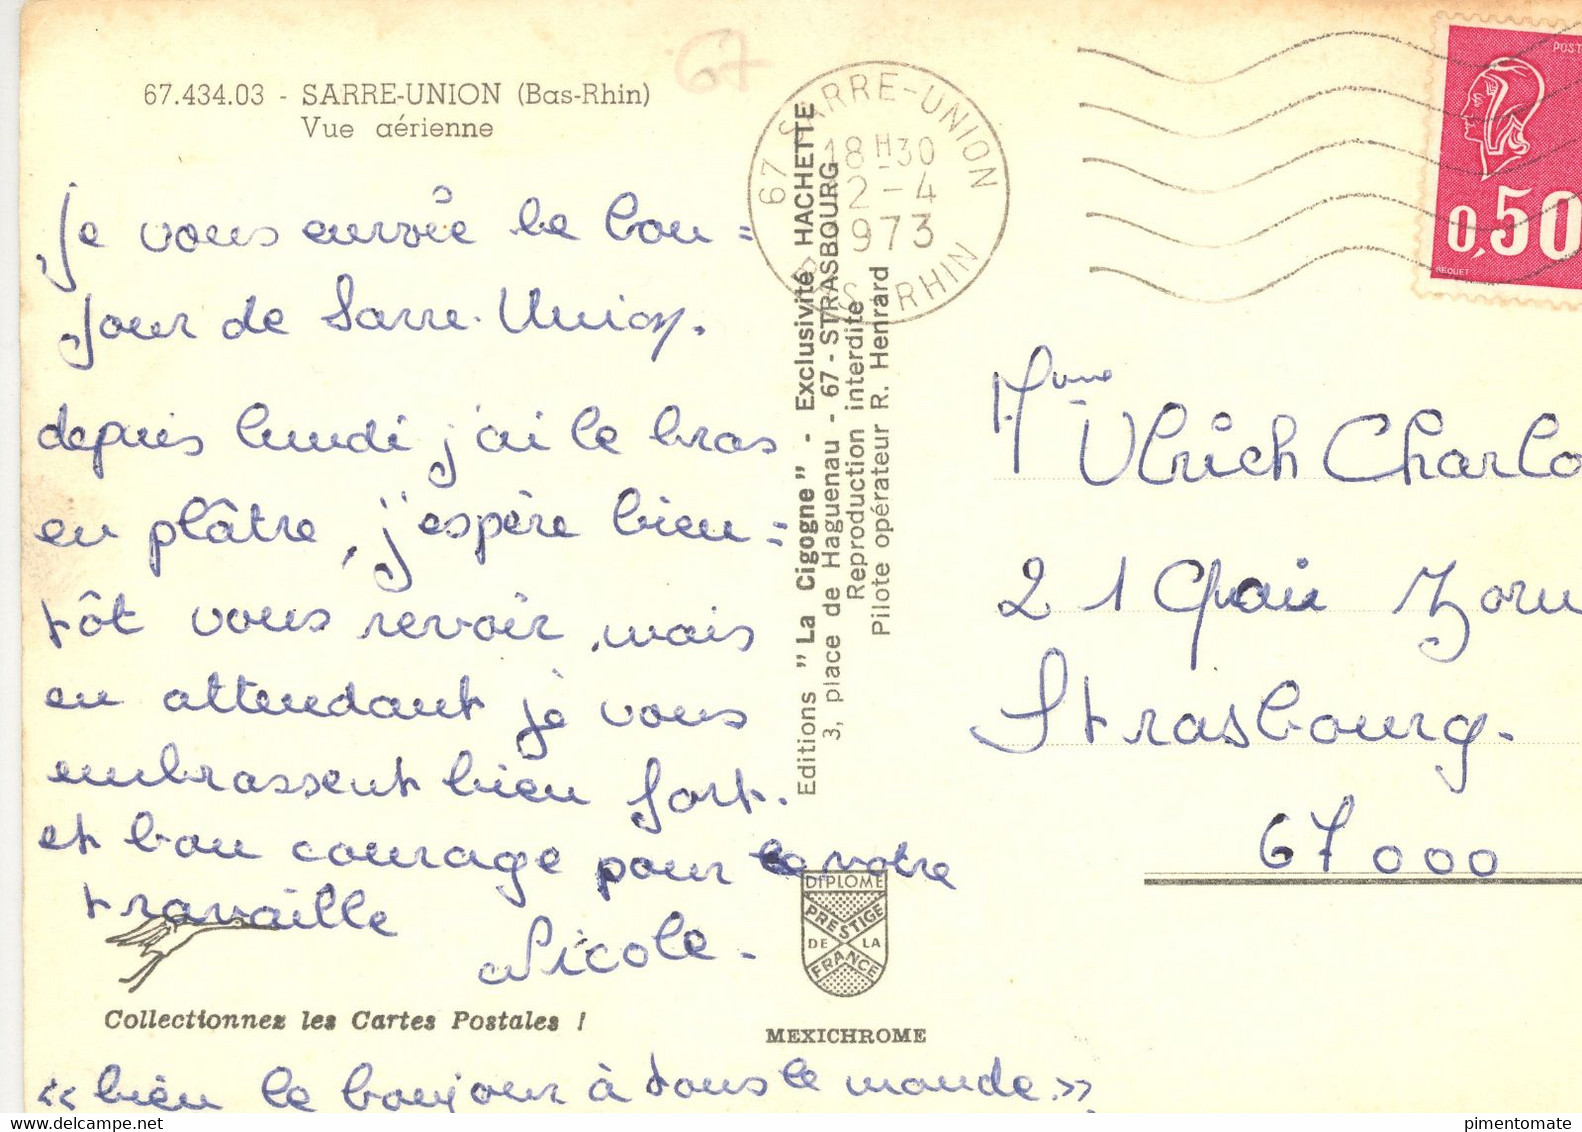 67
67.434.03 - SARRE-UNION (Bas-Rhin)
Vue aérienne
je vous envoie le bon=
jour de Sarre-Union.
depuis lundi j'ai le bras
en plâtre, j'espère bien=
tôt vous revoir, mais
en attendant je vous
embrassent bien fort.
et bon courage pour le votre
travaille
Nicole.
Collectionnez les Cartes Postales !
« bien le bonjour à tous le monde »
Editions "La Cigogne" - Exclusivité HACHETTE
3, place de Haguenau - 67 - STRASBOURG
Reproduction interdite
Pilote opérateur R. Henrard
DIPLOME
PRESTIGE
DE LA
FRANCE
MEXICHROME
67 SARRE-UNION
18H30
2-4
1973
BAS RHIN
POST
0,50
BEQUET
Mme Ulrich Charlo
21 Quai Zorn
Strasbourg.
67000
pimentomate